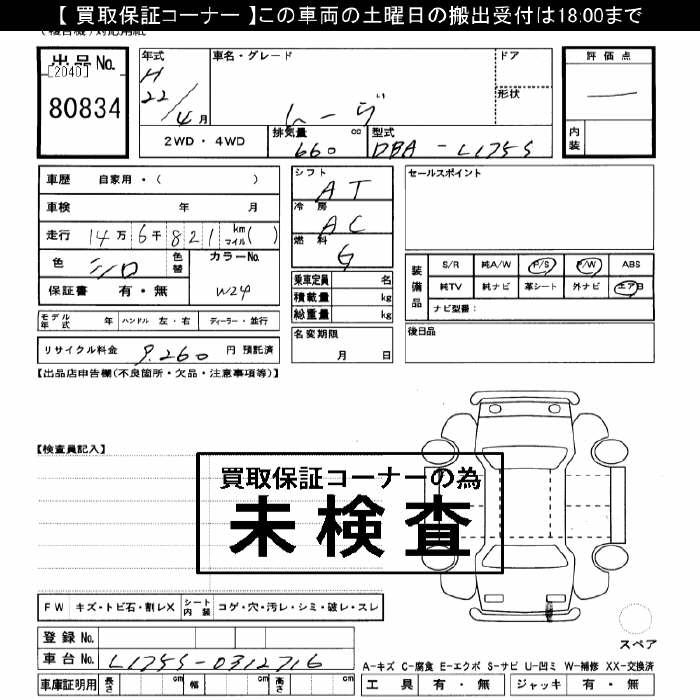 【 買取保証コーナー 】この車両の土曜日の搬出受付は18:00まで
出品No.
[2040]
80834
年式
H
22/4月
車名・グレード
ドア
形状
2WD・4WD
排気量 cc
660
型式
DBA-L175S
評価点
内装
車歴 自家用・( )
車検 年 月
走行 14万6千821 km マイル( )
色 シロ 色替
カラーNo.
W24
保証書 有・無
シフト
AT
冷房
AC
燃料
G
乗車定員 名
積載量 kg
総重量 kg
セールスポイント
装備品
S/R 純A/W P/S P/W ABS
純TV 純ナビ 革シート 外ナビ エアB
ナビ型番:
モデル年式 年 ハンドル 左・右 ディーラー・並行
リサイクル料金 9.260 円 預託済
名変期限
月 日
後日品
【出品店申告欄(不良箇所・欠品・注意事項等)】
【検査員記入】
買取保証コーナーの為
未検査
FW キズ・トビ石・割レX シート内装 コゲ・穴・汚レ・シミ・破レ・スレ
スペア
登録No.
車台No. L175S-0312716
A-キズ C-腐食 E-エクボ S-サビ U-凹ミ W-補修 XX-交換済
車庫証明用 長さ cm 幅 cm 高さ cm
工具 有・無 ジャッキ 有・無